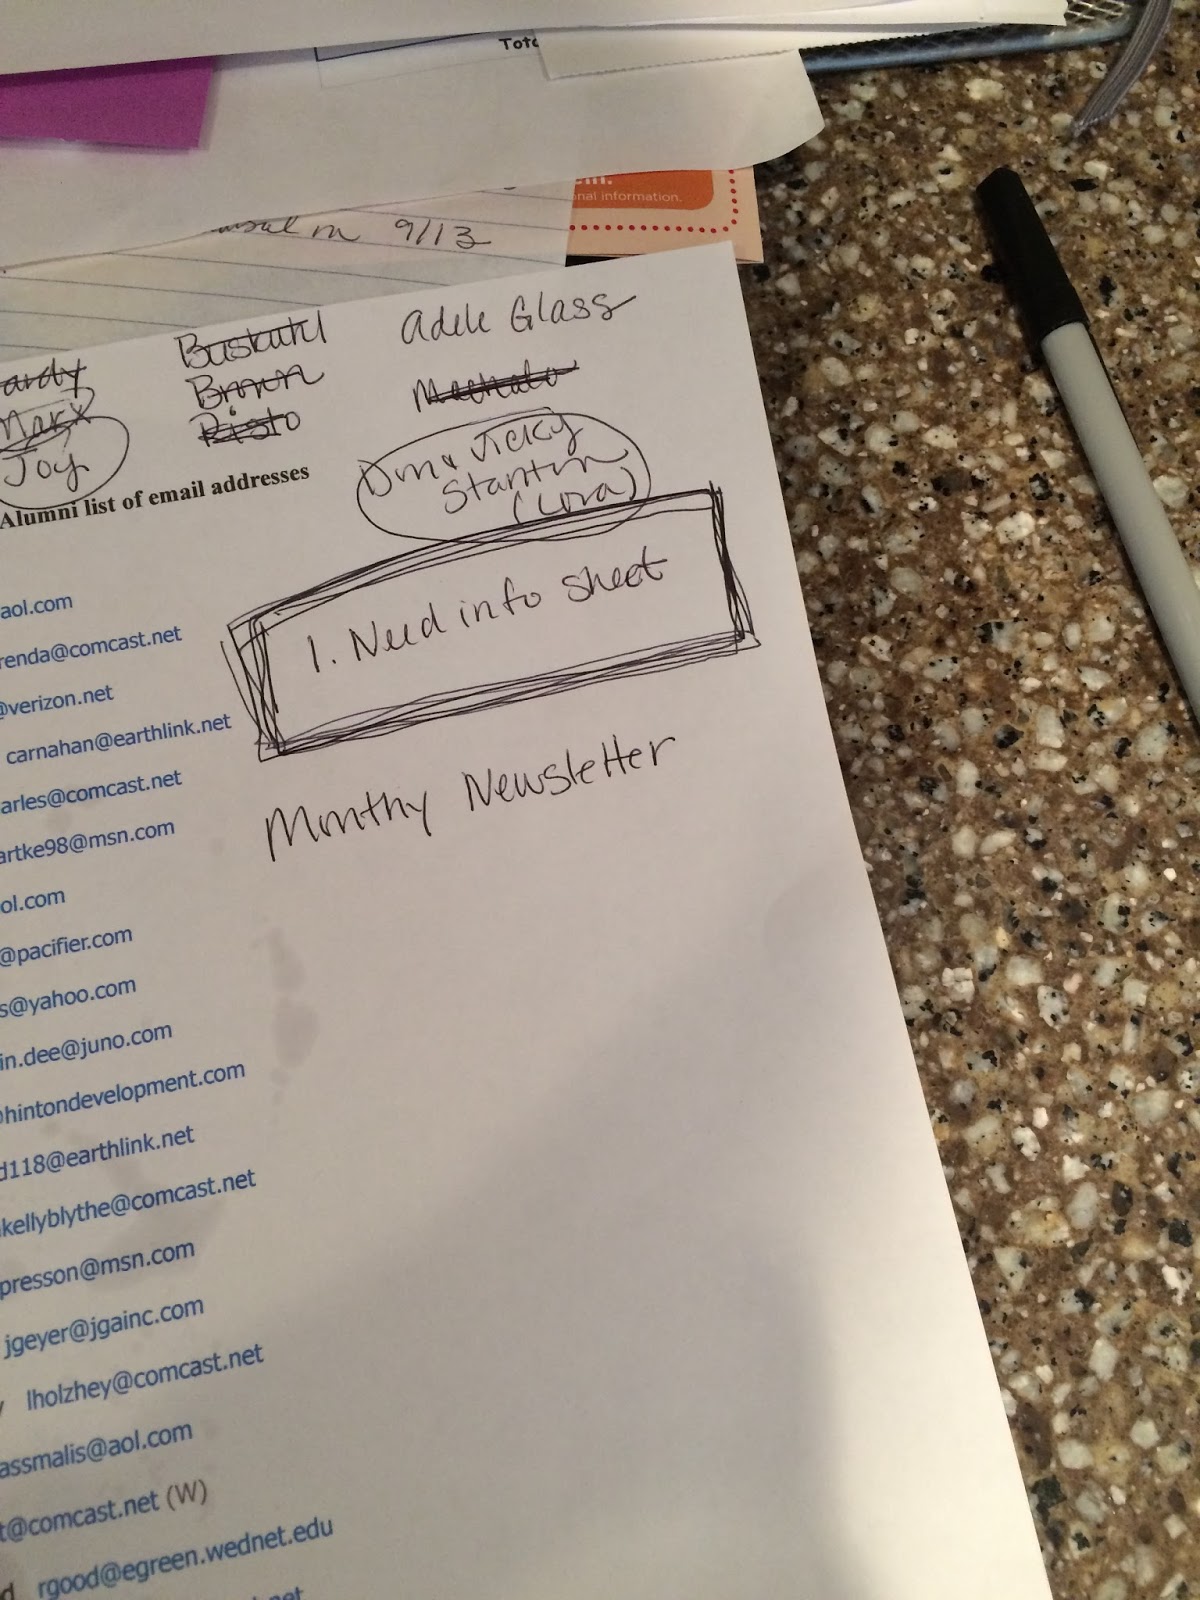 Tota
onal information.
in 9/13
Adele Glass
Brown
Risto
Marx
Joy
Don & Vicky
Stanton
(Lora)
Alumni list of email addresses
1. Need info sheet
Monthy Newsletter
aol.com
renda@comcast.net
@verizon.net
carnahan@earthlink.net
arles@comcast.net
artke98@msn.com
ol.com
@pacifier.com
s@yahoo.com
in.dee@juno.com
hintondevelopment.com
d118@earthlink.net
kellyblythe@comcast.net
presson@msn.com
jgeyer@jgainc.com
y lholzhey@comcast.net
assmalis@aol.com
t@comcast.net (W)
d rgood@egreen.wednet.edu
.net